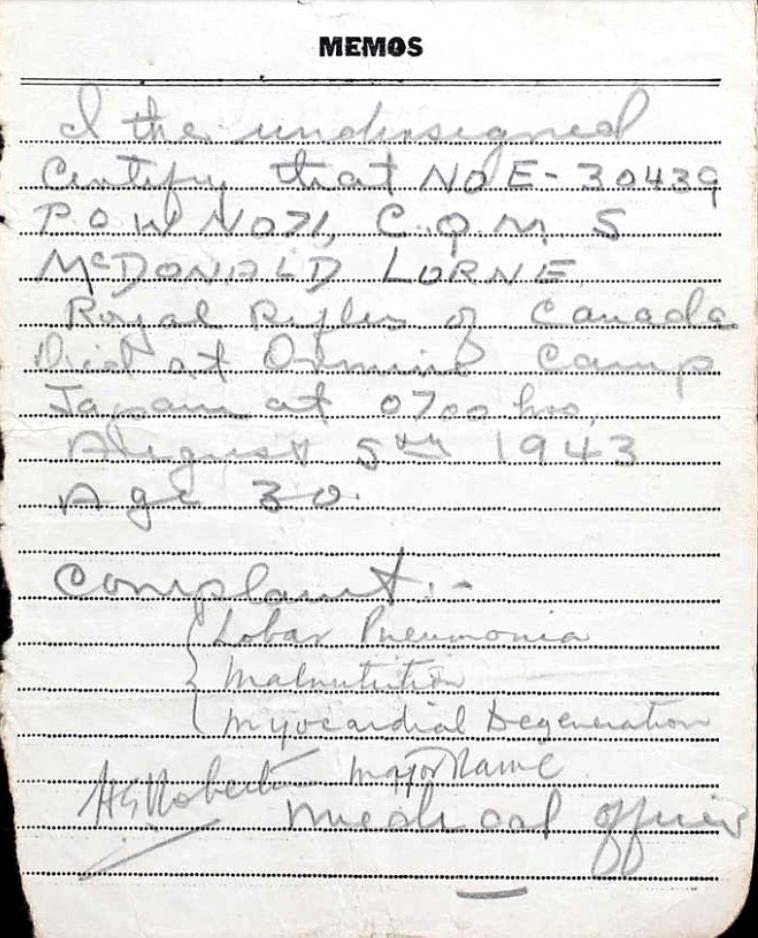 MEMOS
I the undersigned
Certify that NO E-30439
P.O.W NO 71, C.Q.M.S
McDONALD LORNE
Royal Rifles of Canada
Died at Camp
Japan at 0700 hrs,
August 5th 1943
Age 30.
Complaint:-
Lobar Pneumonia
Malnutrition
Myocardial Degeneration
Major
Medical Officer